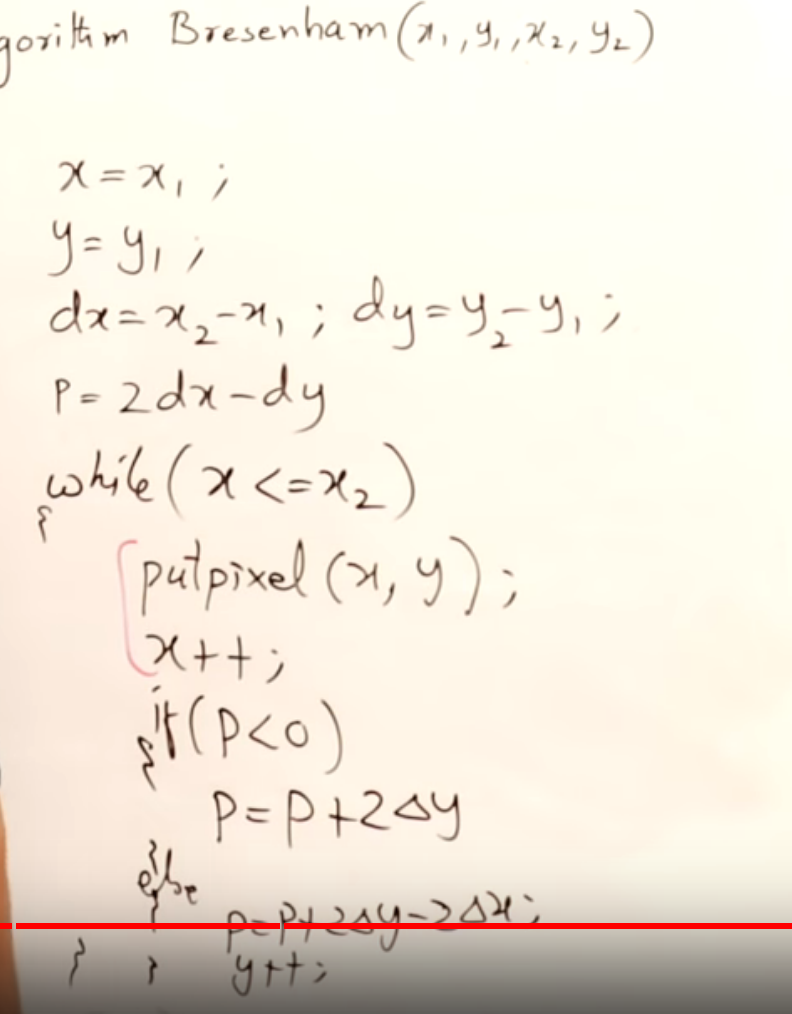 gorithm Bresenham(x₁, y₁, x₂, y₂)
x = x₁ ;
y = y₁ ;
dx = x₂ - x₁ ; dy = y₂ - y₁ ;
P = 2dx - dy
while ( x <= x₂ )
{
putpixel (x, y) ;
x++ ;
if (P < 0)
{
P = P + 2Δy
}
else
{
P = P + 2Δy - 2Δx ;
y++ ;
} }